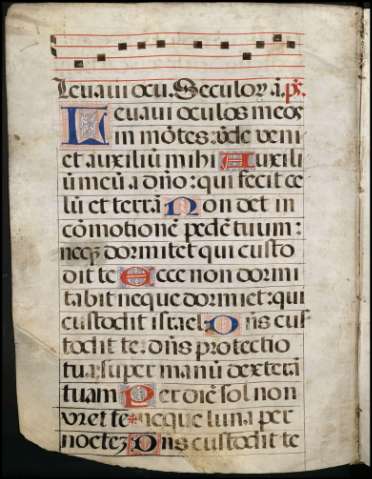 Leuaui ocu. Seculoꝝ ā. ps.
Leuaui oculos meos
in mōtes: ūde veni
et auxiliū mihi Auxili
ū meū a dño: qui fecit ce
lū et terrā Non det in
cōmotionē pedē tuum:
neqz dormitet qui custo
dit te Ecce non dormi
tabit neque dormiet: qui
custodit israel Dñs cus
todit te: dñs protectio
tua: super manū dexterā
tuam Per diē sol non
vret te: neque luna per
noctez Dñs custodit te